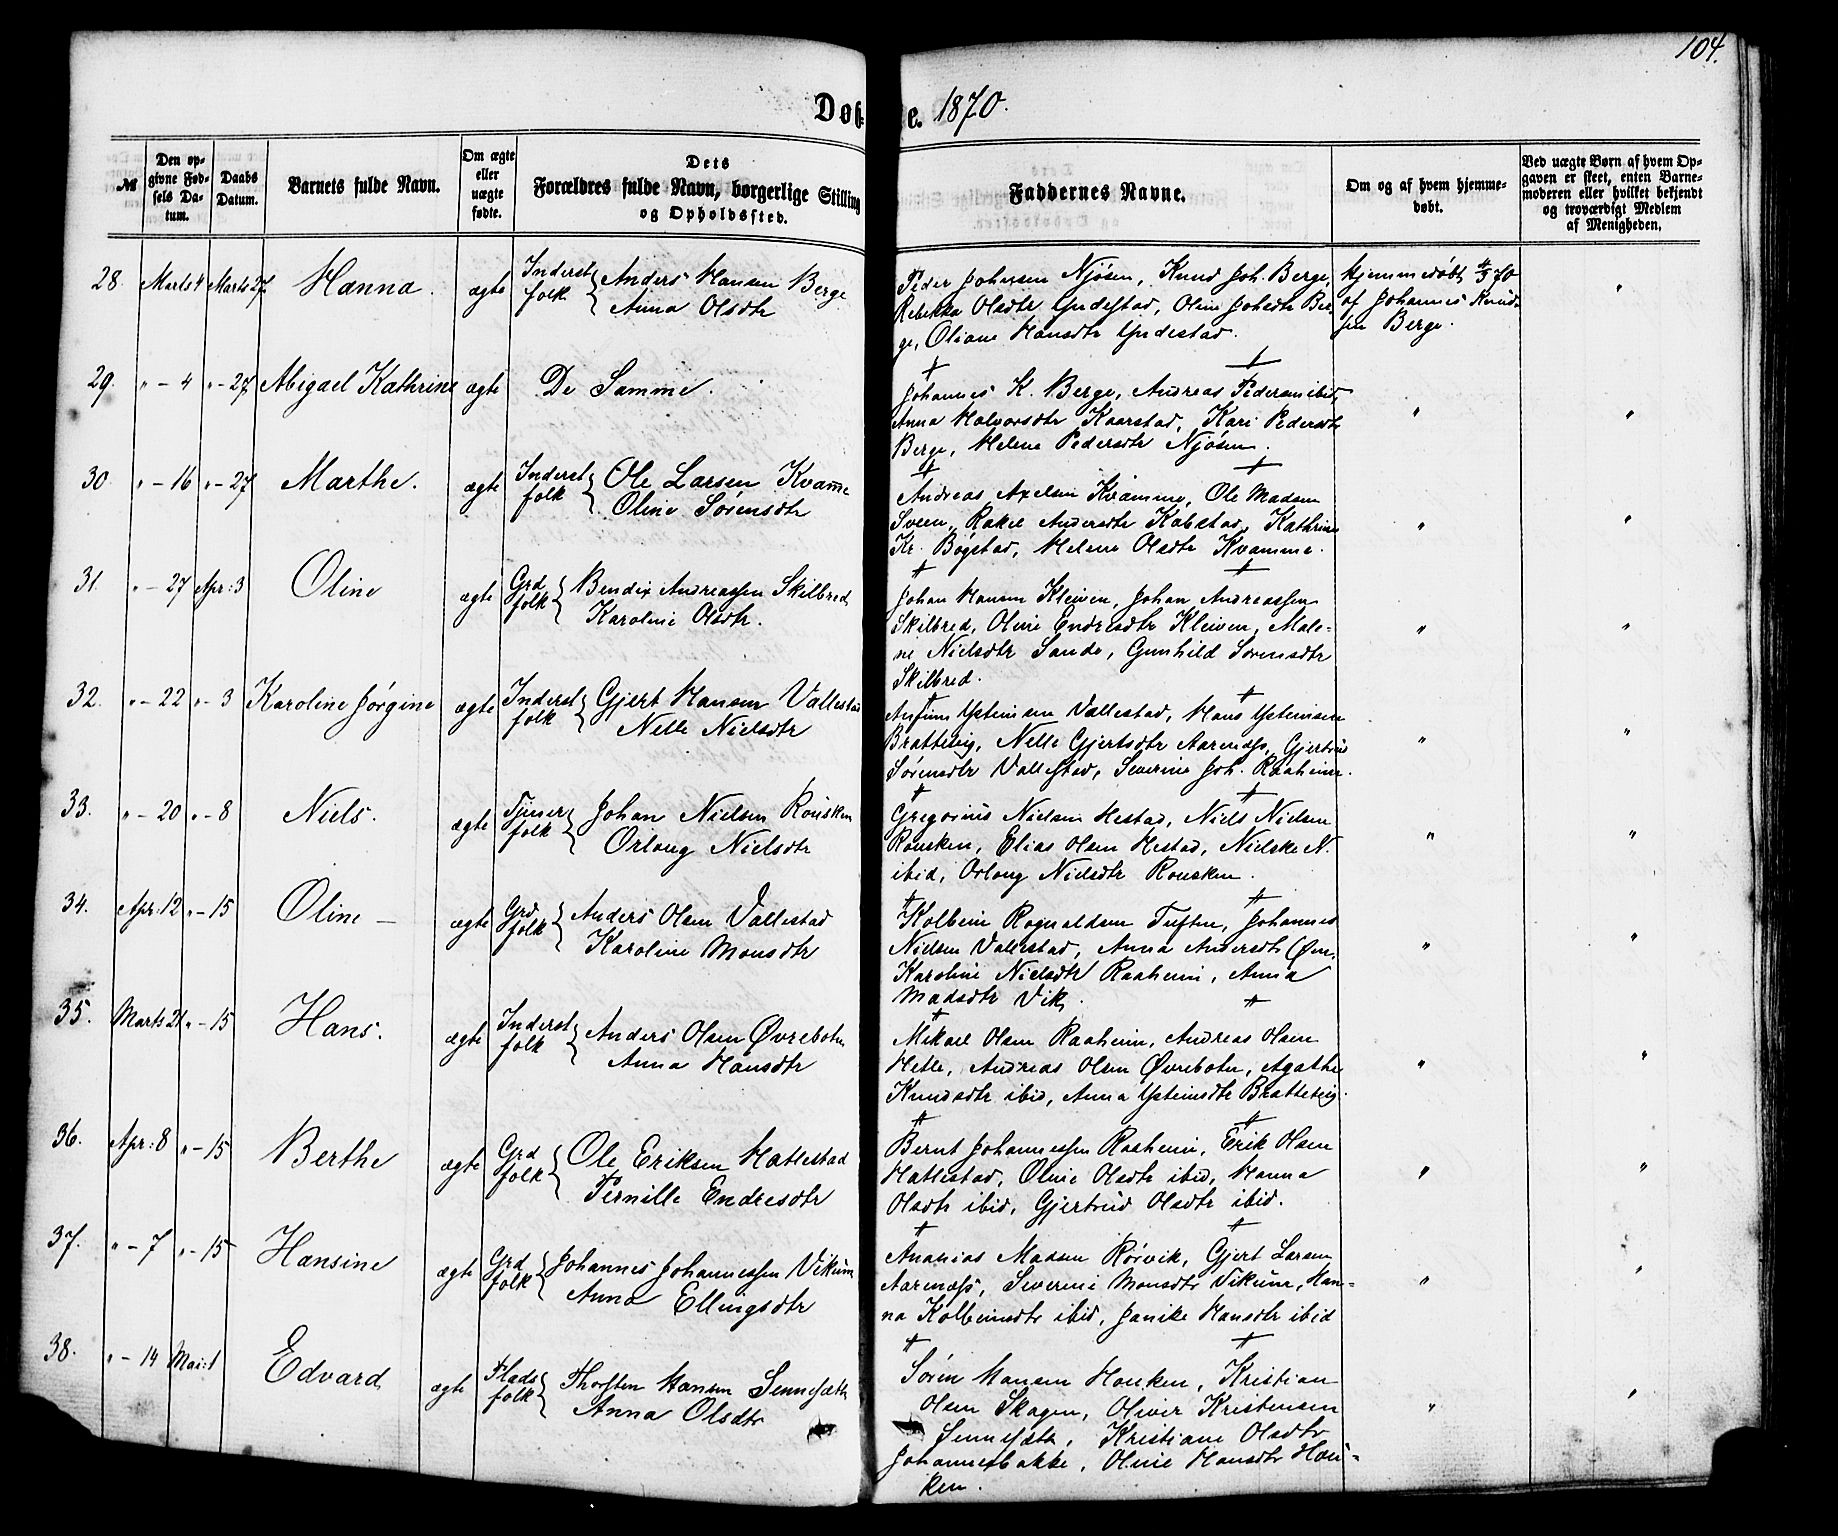 104.
Døbte. 1870.
№
Den opgivne Fødsels Datum.
Daabs Datum.
Barnets fulde Navn.
Om ægte eller uægte fødte.
Dets Forældres fulde Navn, borgerlige Stilling og Opholdssted.
Faddernes Navne.
Om og af hvem hjemmedøbt.
Ved uægte Børn af hvem Opgaven er skeet, enten Barnemoderen eller hvilket bekjendt og troværdigt Medlem af Menigheden.
28. Marts 4 Marts 27 Hanna. ægte Inderstfolk Anders Hansen Berge
Anna Olsdtr
Peder Johnsen Njøsen, Knud Joh. Berge,
Rebekka Olsdtr Yndestad, Oline Johsdtr Ber-
ge, Oliane Hansdtr Yndestad.
hjemmedøbt 4/3 70
af Johannes Knud-
sen Berge.
"
29. " - 4 " - 27 Abigael Kathrine ægte De Samme.
Johannes K. Berge, Andreas Pedersen ibid,
Anna Halvorsdtr Kaarstad, Kari Pedersdtr
Berge, Helene Pedersdtr Njøsen.
" "
30. " - 16 " - 27 Marthe. ægte Inderstfolk Ole Larsen Kvamme
Oline Sørensdtr
Andreas Axelsen Kvamme, Ole Madsen
Sveen, Rakel Andersdtr Kobstad, Kathrine
Kr. Bøgstad, Helene Olsdtr Kvamme.
" "
31. " - 27 Apr: 3 Oline ægte Grdfolk Bendix Andreassen Skilbred
Karoline Olsdtr.
Johan Hansen Kleiven, Johan Andreassen
Skilbred, Oline Endresdtr Kleiven, Male-
ne Nielsdtr Sande, Gunhild Sørensdtr
Skilbred.
" "
32. " - 22 " - 3 Karoline Jørgine ægte Inderstfolk Gjert Hansen Vallestad
Nelle Nielsdtr
Anfinn Ysteinsen Vallestad, Hans Ysteinsen
Bratteteig, Nelle Gjertsdtr Aarnæss, Gjertrud
Sørensdtr Vallestad, Severine Joh. Raaheim.
" "
33. " - 20 " - 8 Niels. ægte Tjenerfolk Johan Nielsen Rousken
Orloug Nielsdtr
Gregorius Nielsen Hestad, Niels Nielsen
Rousken, Elias Olsen Hestad, Nielske N.
ibid, Orloug Nielsdtr Rousken.
" "
34. Apr: 12 " - 15 Oline ægte Grdfolk Anders Olsen Vallestad
Karoline Monsdtr
Kolbein Rognaldsen Tuften, Johannes
Nielsen Vallestad, Anna Andersdtr Øen,
Karoline Nielsdtr Raaheim, Anna
Madsdtr Vik.
" "
35. Marts 21 " - 15 Hans. ægte Inderstfolk Anders Olsen Øvreboten
Anna Hansdtr
Mikael Olsen Raaheim, Andreas Olsen
Helle, Andreas Olsen Øvreboten, Agathe
Knudsdtr ibid, Anna Ysteinsdtr Bratteteig.
" "
36. Apr: 8 " - 15 Berthe ægte Grdfolk Ole Eriksen Hatlestad
Pernille Endresdtr
Bernt Johannessen Raaheim, Erik Olsen
Hatlestad, Oline Olsdtr ibid, Hanna
Olsdtr ibid, Gjertrud Olsdtr ibid.
" "
37. " - 7 " - 15 Hansine ægte Grdfolk Johannes Johannessen Vikum
Anna Ellingsdtr
Ananias Madsen Rørvik, Gjert Larsen
Aarnæss, Severine Monsdtr Vikum, Han-
na Kolbeinsdtr ibid, Janike Hansdtr ibid
" "
38. " - 14 Mai: 1 Edvard ægte Pladsfolk Thorsten Hansen Sennesæth
Anna Olsdtr
Søren Hansen Houken, Kristian
Olsen Skogen, Oliver Kristensen
Sennesæth, Kristiane Olsdtr
Johannesbakke, Oline Hansdtr Hou-
ken.
" "